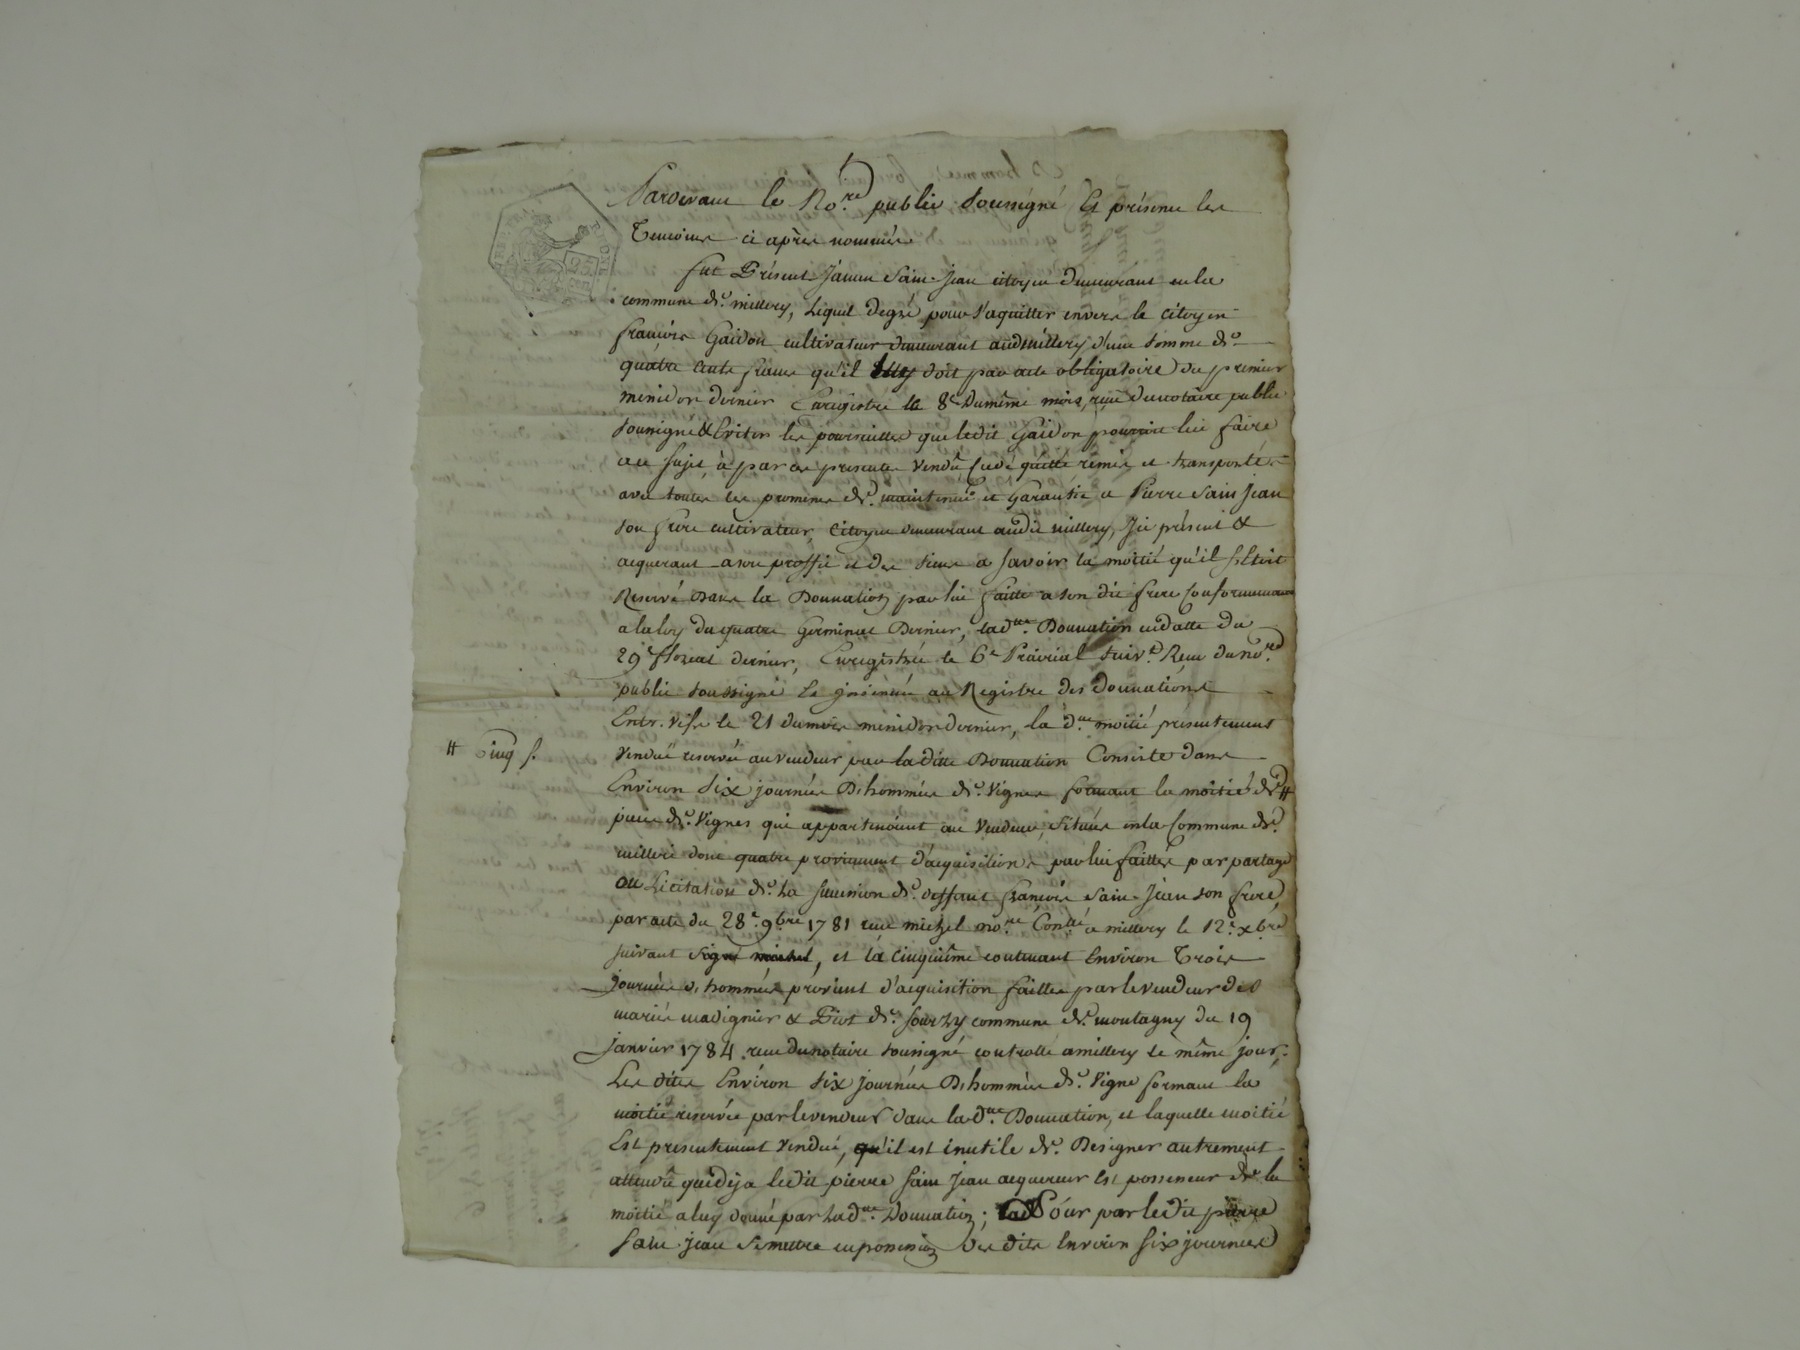 Pardevant le No.re public soussigné Et présence les
Temoins ci après nommés
fut Présent Saint Jean citoyen demeurant en la
commune de millery, Lequel de gré pour s'aquitter envers le citoyen
françois Gaidon cultivateur demeurant aud millery d'une somme de
quatre cents francs qu'il luy doit par acte obligatoire du premier
messidor dernier Enregistré le 8e Du même mois, reçu du notaire public
soussigné & Eviter les poursuittes que ledit Gaidon pourroit lui faire
au sujet, à par ces presentes Vendû cedé quitté remis et transporté
avec toutes les promesses de maintenue et Garantie a Pierre Saint Jean
son frere cultivateur, Citoyen demeurant audit millery, Ici présent &
acquerant a son proffit et des siens a Savoir la moitié qu'il s'Etoit
Reservé Dans la Donnation par lui faitte a son dit frere Conformement
a la loy du quatre Germinal Dernier, lad.tte Donnation en datte du
29e floreal dernier, Enregistrée le 6e Prairial suiv.t Recue du no.re
public soussigné Et insinuée au Registre des donnations
le 21 du mois messidor dernier, la d.tte moitié présentement
Venduë reservée au vendeur par la ditte Donnation Consiste dans
Environ Six journées D'hommées de Vignes formant la moitié de #
# cinq p.
piece de Vignes qui appartenoient au Vendeur, Situées en la Commune de
milleri dont quatre proviennent d'acquisitions par lui faittes par partage
ou Licitation de la succession de deffunt françois Saint Jean son frere,
par acte du 28e 9bre 1781 recu michel no.re Con.lé a millery le 12e xbre
suivant, et la cinquiême contenant Environ Trois
journées d'hommées provient d'acquisition faittes par le vendeur des
mariés madignier & Piot de Sourzy commune de montagny du 19
Janvier 1784 recue du notaire soussigné controllé a millery le même jour,
Les dites Environ Six journées D'hommées de Vigne formant la
moitié reservée par le vendeur dans la d.tte Donnation, et laquelle moitié
Est presentement Venduë, qu'il est inutile de Designer autrement
attendû que deja ledit pierre Saint Jean acquereur Est possesseur de la
moitié a luy donné par la d.tte Donnation; Pour par ledit pierre
Saint jean Se mettre en possession Des dites Environ Six journées